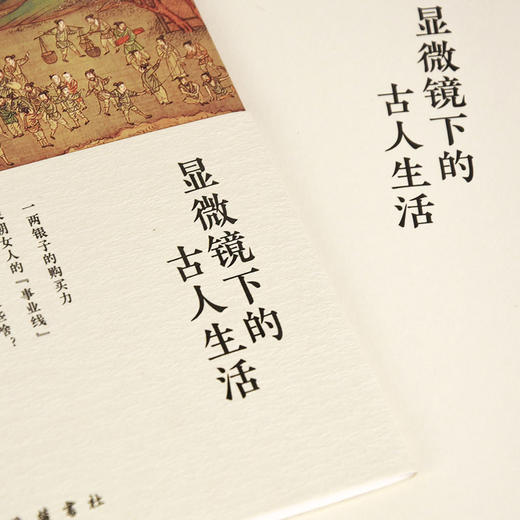 显微镜下的
古人生活
一两银子的购买力
朝女人的『事业线』
些啥？
書社
显微镜下的
古人生活